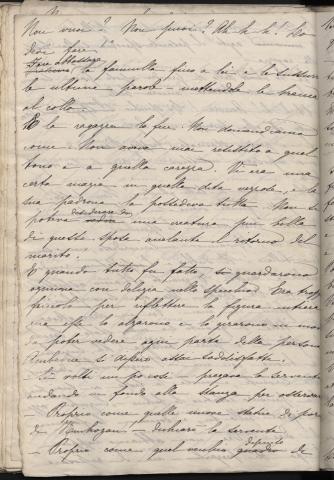 Non vuoi? Non puoi? Ah h h! Lo
devi fare
la fanciulla fino a lei e le
le ultime parole - mettendole le braccia
al collo.
E la ragazza lo fece. Non domandiamo
come. Non aveva mai resistito a quel
tono e a quella carezza. Vi era una
certa magia in quelle dita, e la
sua padrona la possedeva tutta. Non si
poteva una creatura più bella
di questa sposa anelante il ritorno del
marito.
E quando tutto fu fatto, si guardarono
ognuna con delizia nello specchio. Era troppo
piccolo per riflettere la figura intiera
ma esse lo alzarono e lo girarono in modo
da poter vedere ogni parte della persona
Ambedue si assai soddisfatte.
- volti un poco pregava la servente
andando in fondo alla stanza per osservare
- Proprio come quelle nuove statue di
di - dichiarò la servente
- Proprio come quel vecchio quadro di